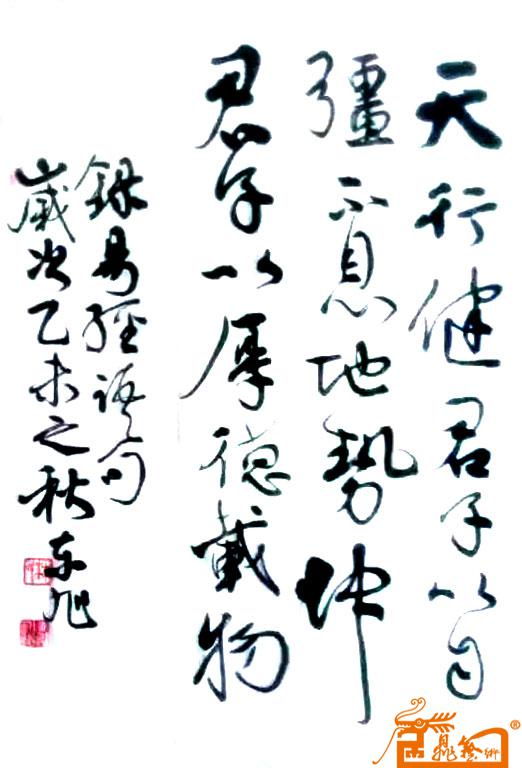 天行健君子以自
彊不息地勢坤
君子以厚德載物
錄易經語句
歲次乙未之秋东旭